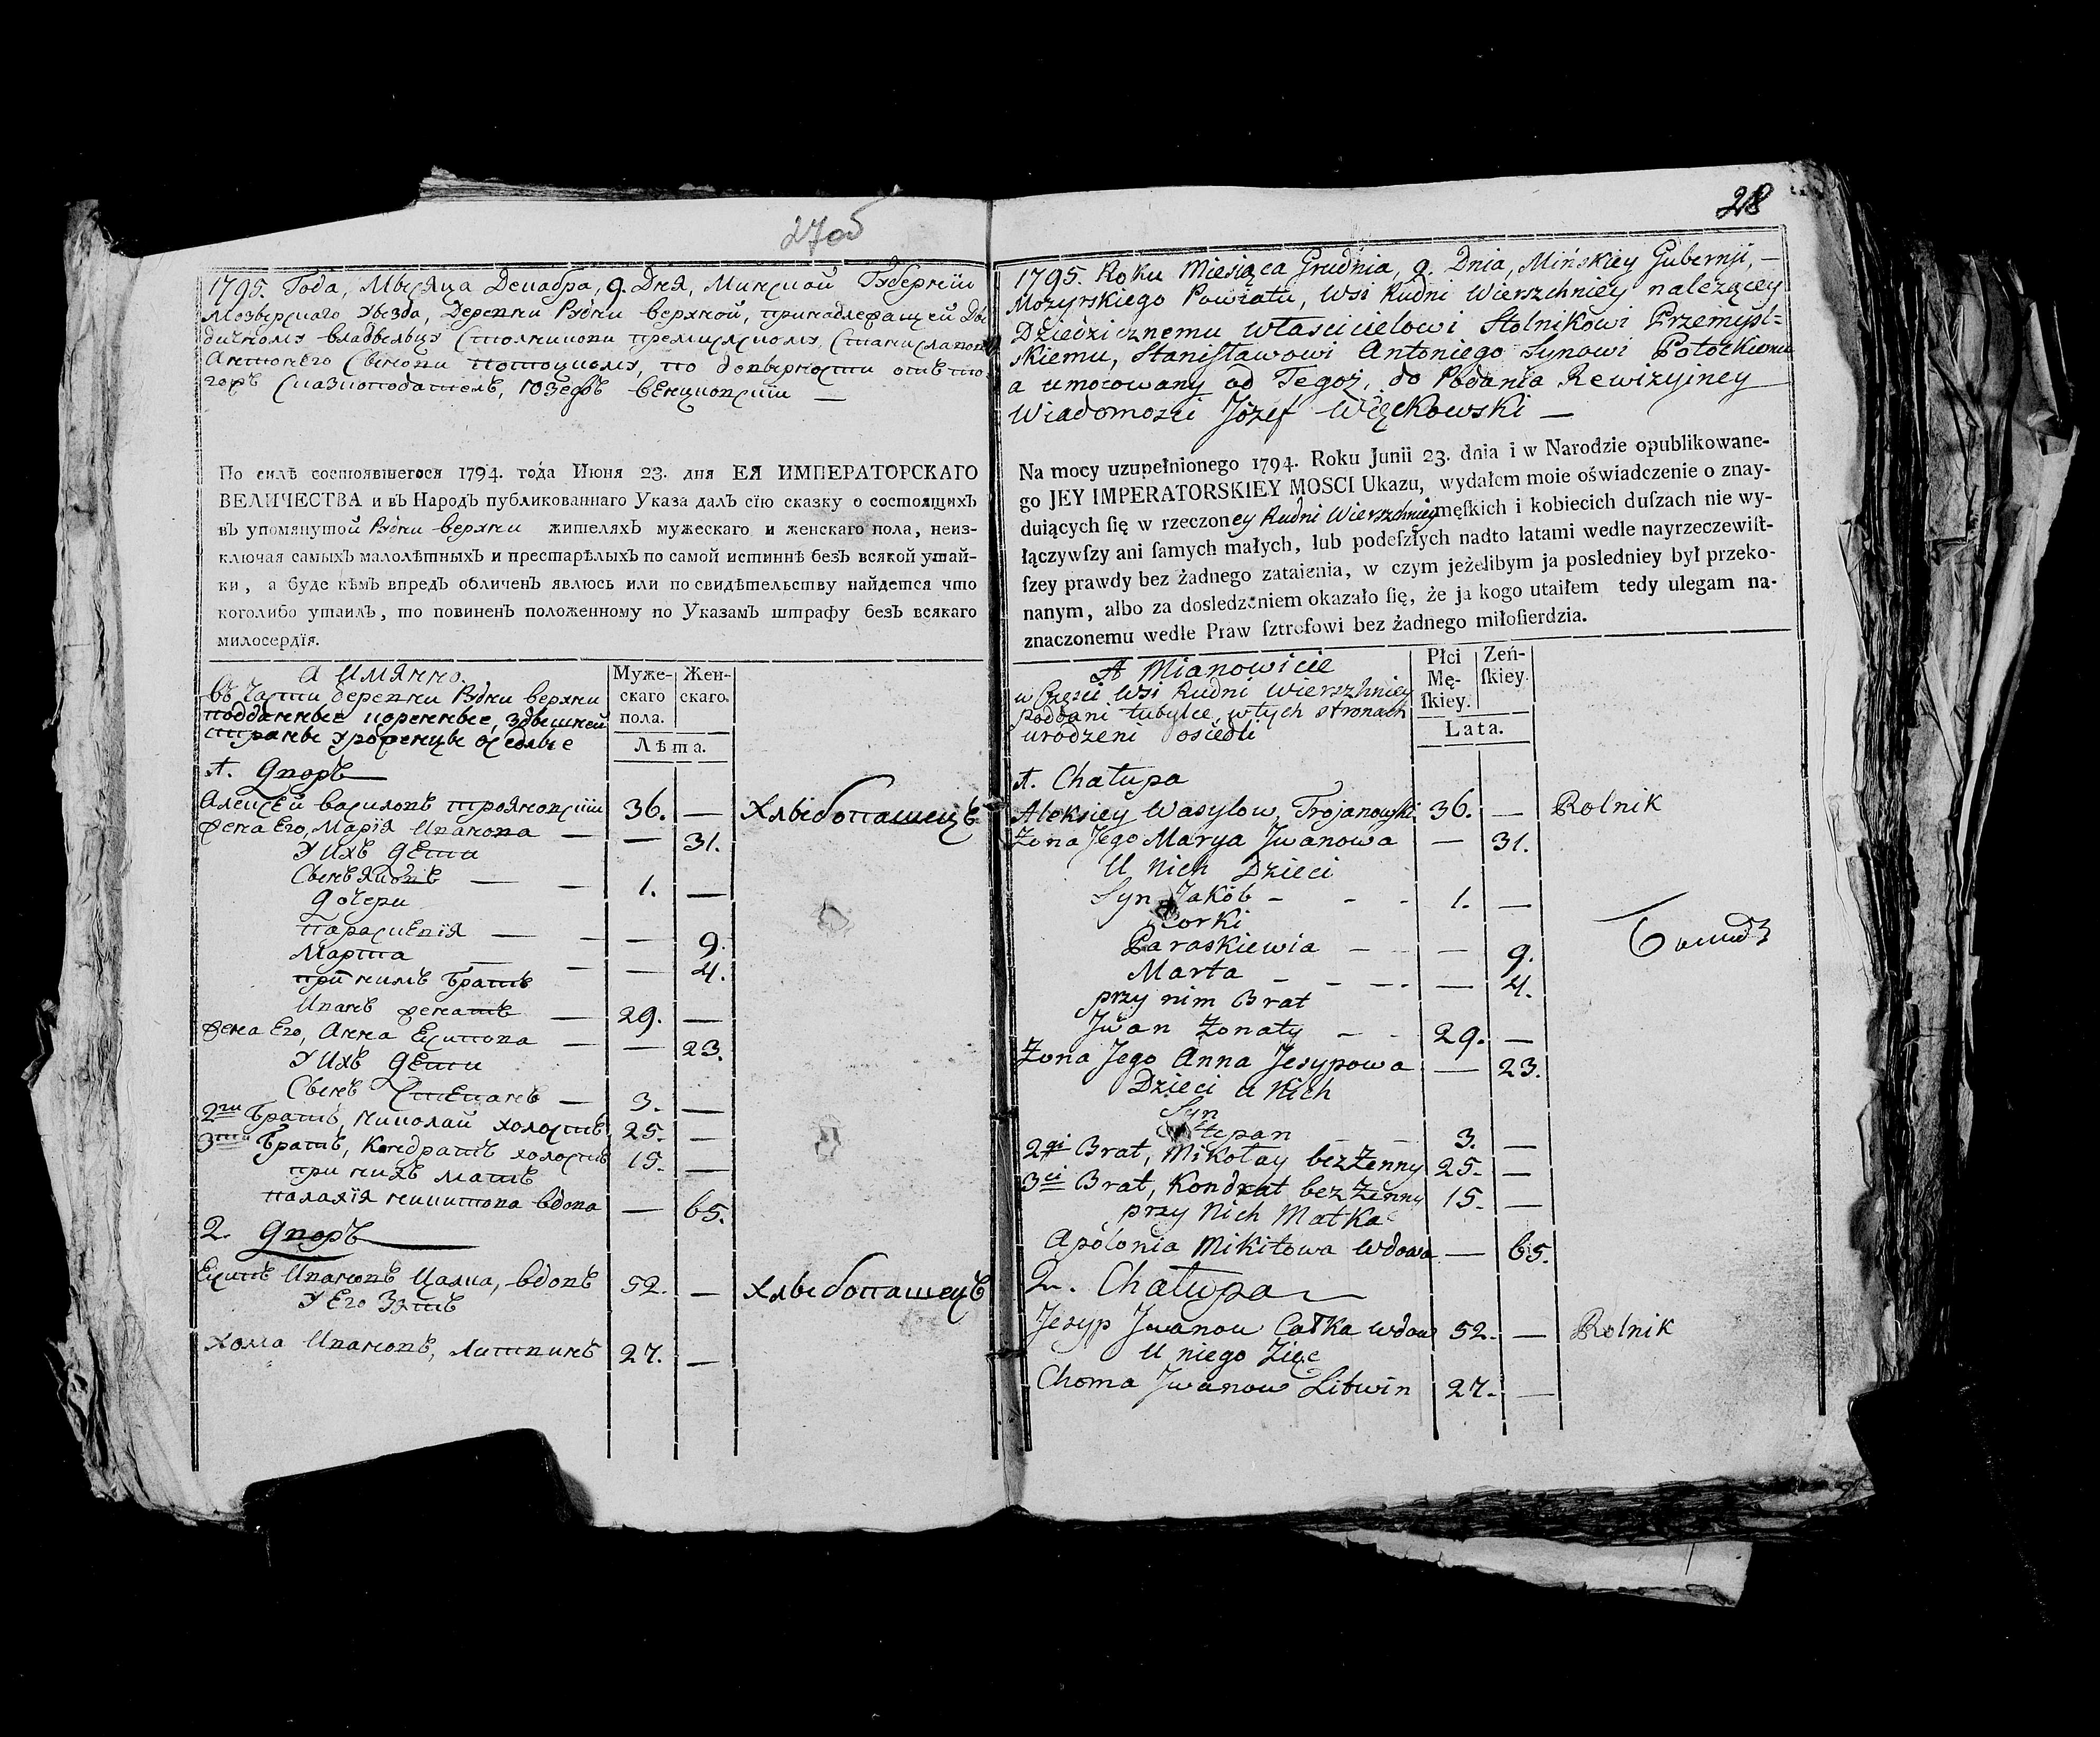 27об
1795. Года, Мѣсяца Декабра, 9. Дня, Минской Губернїи
Мозырскаго Уѣзда, Деревни Рудни верхной, принадлежащей Дѣ
дичному владѣльцу Столникови премислскому, Станиславови
Антонего Сынови Потоцкому, по довѣрности отъ то
гожъ Сказкоподатель, Юзефъ Венцковскїи —
По силѣ состоявшегося 1794. года Июня 23. дня ЕЯ ИМПЕРАТОРСКАГО
ВЕЛИЧЕСТВА и въ Народъ публикованнаго Указа далъ сїю сказку о состоящихъ
въ упомянутой Рудни верхни жителяхъ мужескаго и женскаго пола, неиз-
ключая самыхъ малолѣтныхъ и престарѣлыхъ по самой истиннѣ безъ всякой утай-
ки, а буде кѣмъ впредъ обличенъ явлюсь или по свидѣтельству найдется что
коголибо утаилъ, то повиненъ положенному по Указамъ штрафу безъ всякаго
милосердїя.
А имянно.
въ Части деревни Рудни верхни
подданные коренные, здѣшней
страны уроженцы оседлые
Муже-
скаго
пола.
Жен-
скаго.
Лѣта.
1. Дворъ
Алексей василовъ трояновскїи 36. — Хлыбопашецъ
жена Его, Марїя Иванова — — 31.
У Ихъ Дети
Сынъ Яковъ — — 1. —
Дочери
Параскевїя — — — 9.
Марта — — — 4.
при нимъ Братъ
Иванъ женатъ — 29. —
жена Его, Анна Есипова — — 23.
У Ихъ Дети
Сынъ Степанъ — 3. —
2ги Братъ, николай холостъ 25. —
3тїи Братъ, Кондратъ холостъ 15. —
при нихъ мать
палагїя никитова вдова — 65.
2. Дворъ
Есипъ Ивановъ Цалка, вдовъ 52. — Хлыбопашецъ
У Его Зять
Хома Ивановъ, Литвинъ 27. —
28
1795. Roku Miesiąca Grudnia, 9. Dnia, Mińskiey Gubernji, —
Mozyrskiego Powiatu, Wsi Rudni Wierszchniey należącey
Dziedzicznemu właścicielowi Stolnikowi Przemysl=
skiemu, Stanisławowi Antoniego Synowi Potockiemu
a umocowany od Tegoż, do Podania Rewizyiney
Wiadomości Józef Więckowski —
Na mocy uzupełnionego 1794. Roku Junii 23. dnia i w Narodzie opublikowane-
go JEY IMPERATORSKIEY MOSCI Ukazu, wydałem moie oświadczenie o znay-
duiących ſię w rzeczoney Rudni Wierszchniey męſkich i kobiecich duſzach nie wy-
łączywſzy ani ſamych małych, lub podeſzłych nadto latami wedle nayrzeczewiſt-
ſzey prawdy bez żadnego zataienia, w czym jeżelibym ja posledniey był przeko-
nanym, albo za dosledzeniem okazało ſię, że ja kogo utaiłem tedy ulegam na-
znaczonemu wedle Praw ſztrofowi bez żadnego miłoſierdzia.
A Mianowicie
w Części Wsi Rudni Wierszhniey
poddani tubylce, wtych stronach
urodzeni osiedli
Płci
Mę-
ſkiey.
Zeń-
ſkiey.
Lata.
1. Chałupa
Aleksiey Wasylow, Trojanowski 36. — Rolnik
Żona Jego Marya Jwanowa — 31.
U nich Dzieci
Syn Jakób - - - 1. —
Corki
Paraskiewia — — 9.
Marta - - - — 4.
przy nim Brat
Jwan Żonaty - - 29. —
Żona Jego Anna Jesypowa — 23.
Dzieci u Nich
Syn
Stepan — — 3. —
2gi Brat, Mikołay bez Żenny 25. —
3ci Brat, Kondrat bez Żenny 15. —
przy Nich Matka
Apólonia Mikitowa Wdowa — 65.
2. Chałupa
Jesyp Jwanow Całka wdow 52. — Rolnik
U niego Zięć
Choma Jwanow Litwin 27. —